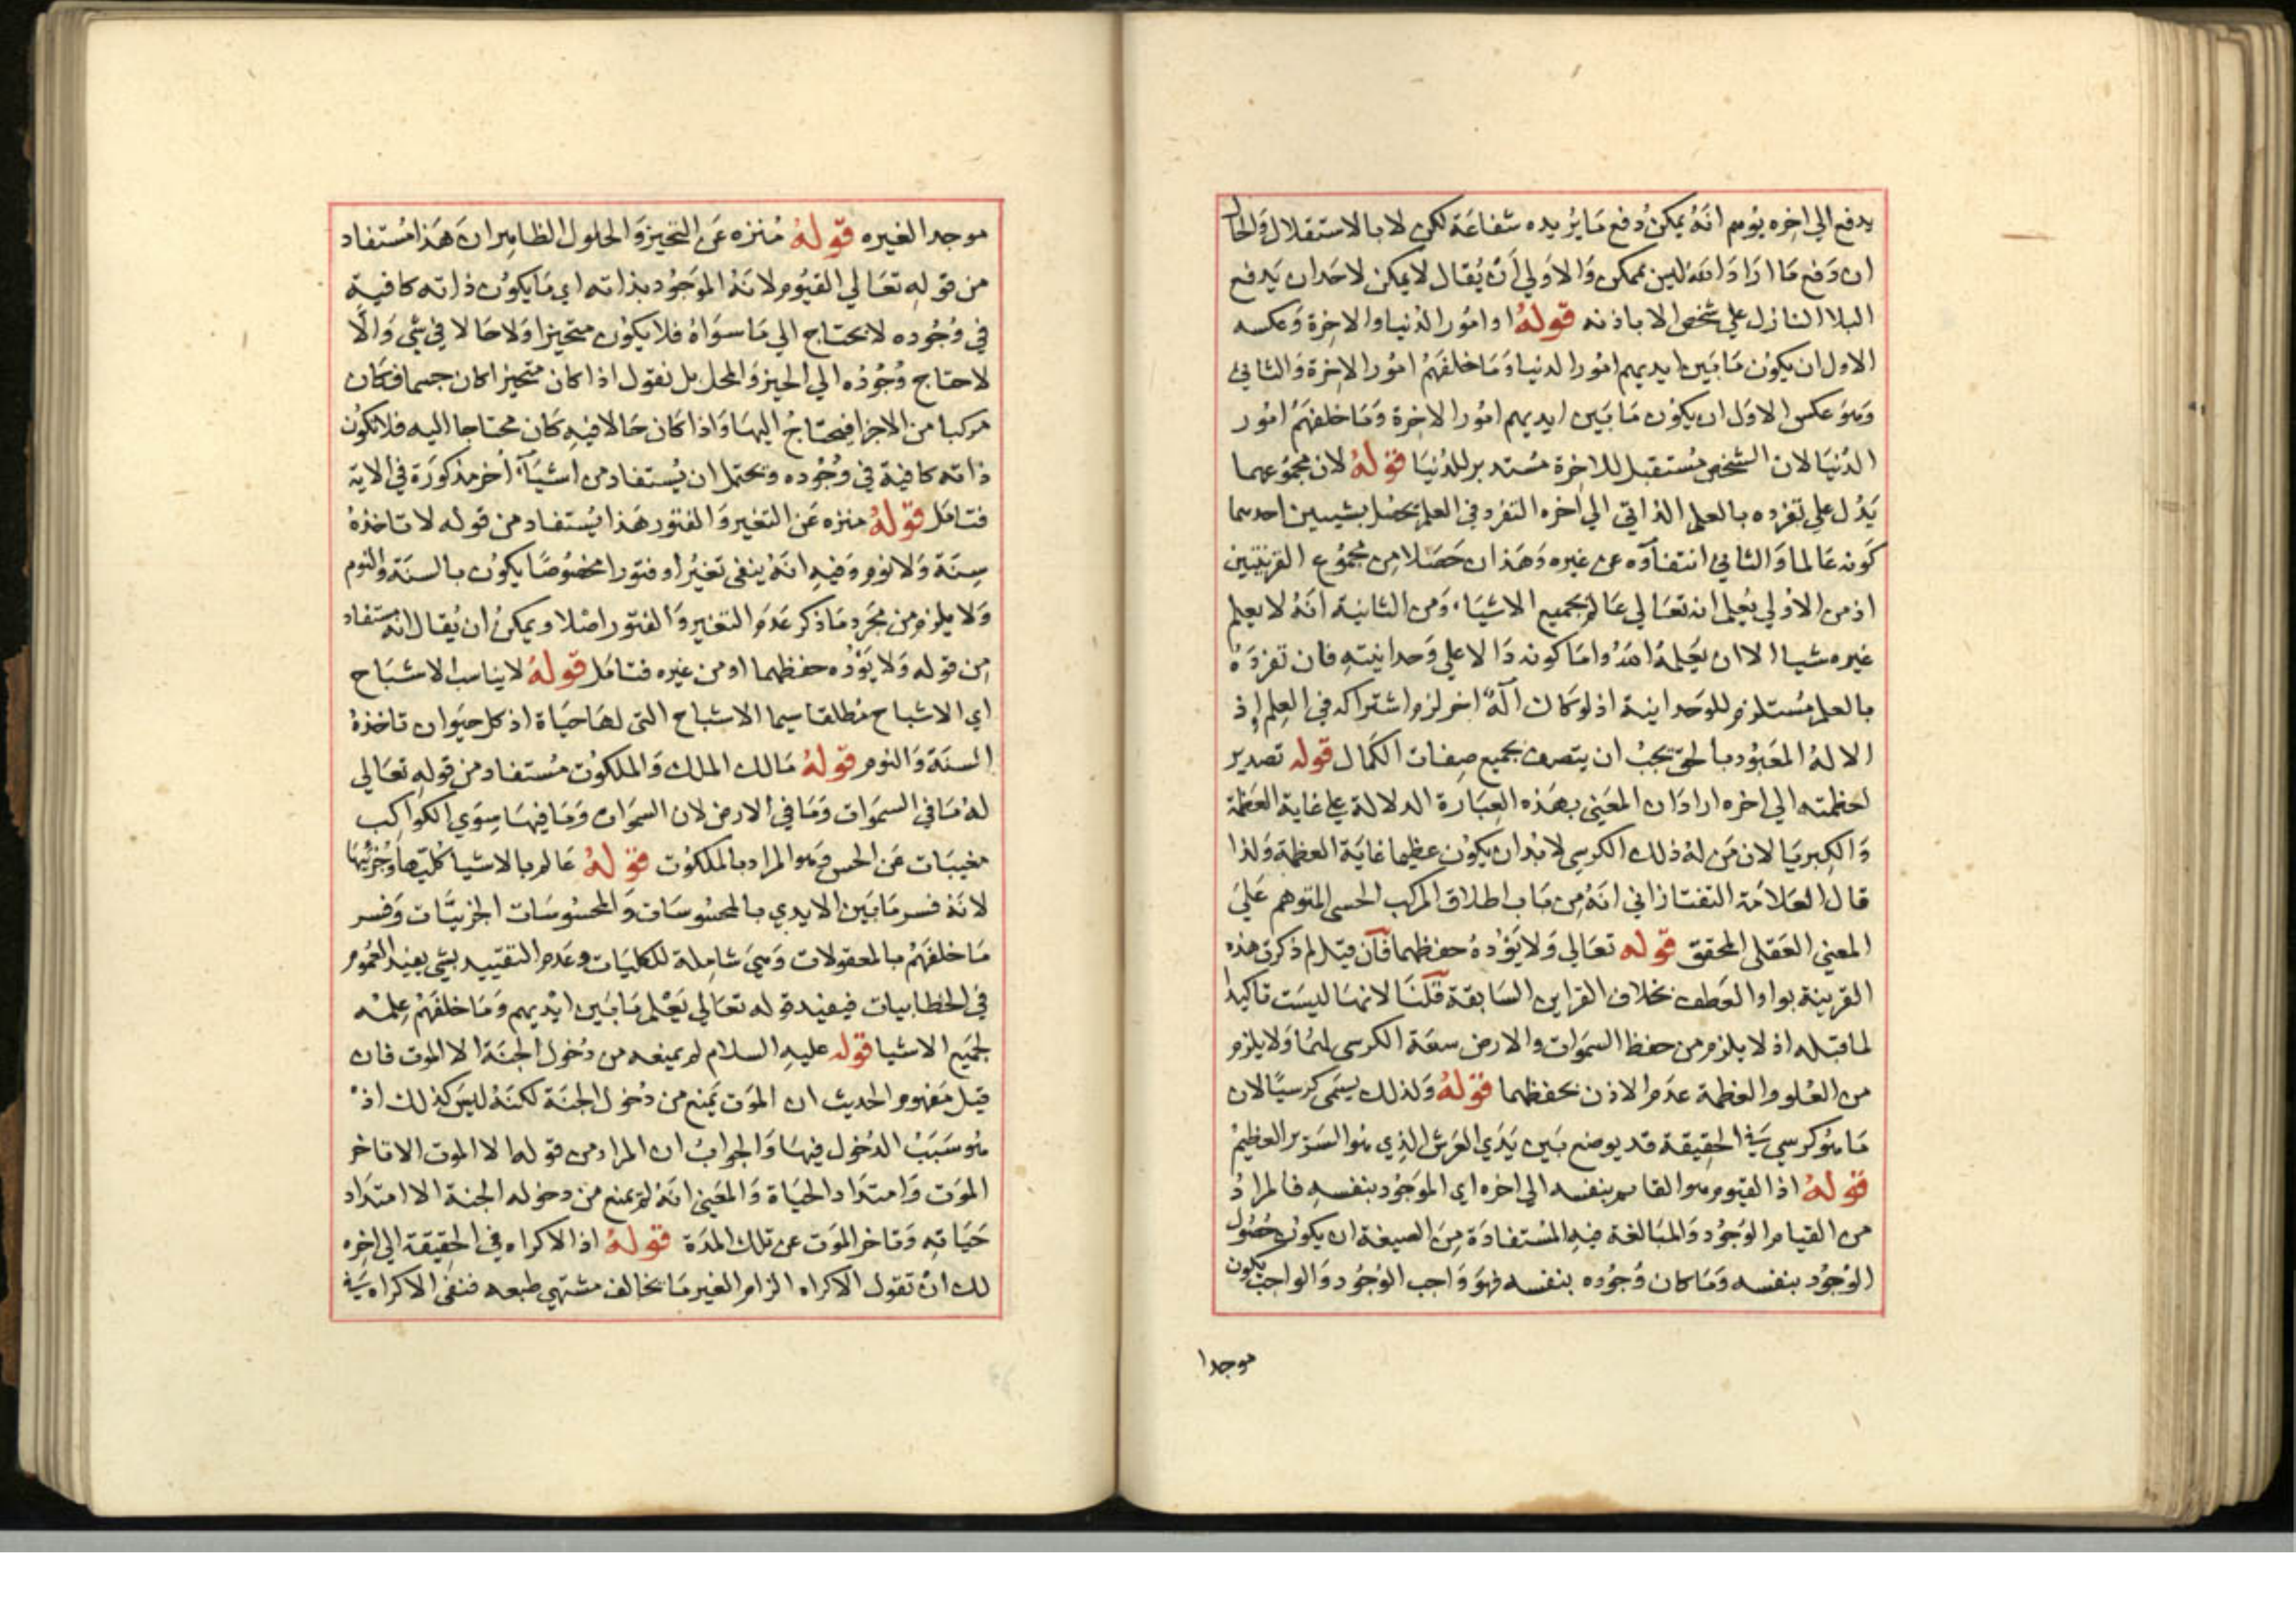 يدفع الي اخره يوهم انه يمكن دفع ما يريده شفاعة لكن لا بالاستقلال والحال
ان دفع ما اراد الله ليس بممكن والاولي ان يقال لا يمكن لاحد ان يدفع
البلا النازل علي شخص الا باذنه قوله او امور الدنيا والاخرة وعكسه
الاول ان يكون ما بين ايديهم امور الدنيا وما خلفهم امور الاخرة والثاني
وهو عكس الاول ان يكون ما بين ايديهم امور الاخرة وما خلفهم امور
الدنيا لان الشخص مستقبل للاخرة مستدبر للدنيا قوله لان مجموعهما
يدل علي تفرده بالعلم الذاتي الي اخره التفرد في العلم يحصل بشيين احدهما
كونه عالما والثاني انتفاؤه عن غيره وهذان حصلا من مجموع القرينتين
اذ من الاولي يعلم انه تعالي عالم بجميع الاشياء ومن الثانية انه لا يعلم
غيره شيا الا ان يعلمه الله واما كونه دالا علي وحدانيته فان تفرده
بالعلم مستلزم للوحدانية اذ لو كان آله اخر لزم اشتراكه في العلم اذ
الاله المعبود بالحق يجب ان يتصف بجميع صفات الكمال قوله تصوير
لعظمته الي اخره اراد ان المعني بهذه العبارة الدلالة علي غاية العظمة
والكبريا لان من له ذلك الكرسي لا بد ان يكون عظيما غاية العظمة ولذا
قال العلامة التفتازاني انه من باب اطلاق المركب الحسي المتوهم علي
المعني العقلي المحقق قوله تعالي ولا يؤده حفظهما فان قيل لم ذكرت هذه
القرينة بواو العطف بخلاف القراين السابقة قلنا لانها ليست تاكيدا
لما قبله اذ لا يلزم من حفظ السموات والارض سعة الكرسي لهما ولا يلزم
من العلو والعظمة عدم الاذن بحفظهما قوله ولذلك يسمي كرسيا لان
ما هو كرسي في الحقيقة قد يوضع بين يدي العرش الذي هو السرير العظيم
قوله اذ القيوم هو القايم بنفسه الي اخره اي الموجود بنفسه فالمراد
من القيام الوجود والمبالغة فيه المستفادة من الصيغة ان يكون حصول
الوجود بنفسه وما كان وجوده بنفسه فهو واجب الوجود والواجب يكون
موجدا
موجدا لغيره قوله منزه عن التحيز والحلول الظاهر ان هذا مستفاد
من قوله تعالي القيوم لانه الموجود بذاته اي ما يكون ذاته كافية
في وجوده لا يحتاج الي ما سواه فلا يكون متحيزا ولا حالا في شي والا
لاحتاج وجوده الي الحيز والمحل بل نقول اذا كان متحيزا كان جسما فكان
مركبا من الاجزا فيحتاج اليها واذا كان حالا فيه كان محتاجا اليه فلا تكون
ذاته كافية في وجوده ويحتمل ان يستفاد من اشياء اخر مذكورة في الاية
فتامل قوله منزه عن التغير والفتور هذا يستفاد من قوله لا تاخذه
سنة ولا نوم وفيه انه ينفي تغيرا وفتورا مخصوصا يكون بالسنة والنوم
ولا يلزم من مجرد ما ذكر عدم التغير والفتور اصلا ويمكن ان يقال انه مستفاد
من قوله ولا يؤده حفظهما او من غيره فتامل قوله لا يناسب الاشباح
اي الاشباح مطلقا سيما الاشباح التي لها حياة اذ كل حيوان تاخذه
السنة والنوم قوله مالك الملك والملكوت مستفاد من قوله تعالي
له ما في السموات وما في الارض لان السموات وما فيها سوي الكواكب
مغيبات عن الحس وهو المراد بالملكوت قوله عالم بالاشيا كليها وجزئيها
لانه فسر ما بين الايدي بالمحسوسات والمحسوسات الجزيات وفسر
ما خلفهم بالمعقولات وهي شاملة للكليات وعدم التقييد بشي يفيد العموم
في الخطابيات فيفيد قوله تعالي يعلم ما بين ايديهم وما خلفهم علمه
لجميع الاشيا قوله عليه السلام لم يمنعه من دخول الجنة الا الموت فان
قيل مفهوم الحديث ان الموت يمنع من دخول الجنة لكنه ليس كذلك اذ
هو سبب الدخول فيها والجواب ان المراد من قوله الا الموت الا تاخر
الموت وامتداد الحياة والمعني انه لم يمنع من دخوله الجنة الا امتداد
حياته وتاخر الموت عن تلك المدة قوله اذ الاكراه في الحقيقة الي اخره
لك ان تقول الاكراه الزام الغير ما يخالف مشتهي طبعه فنفي الاكراه في